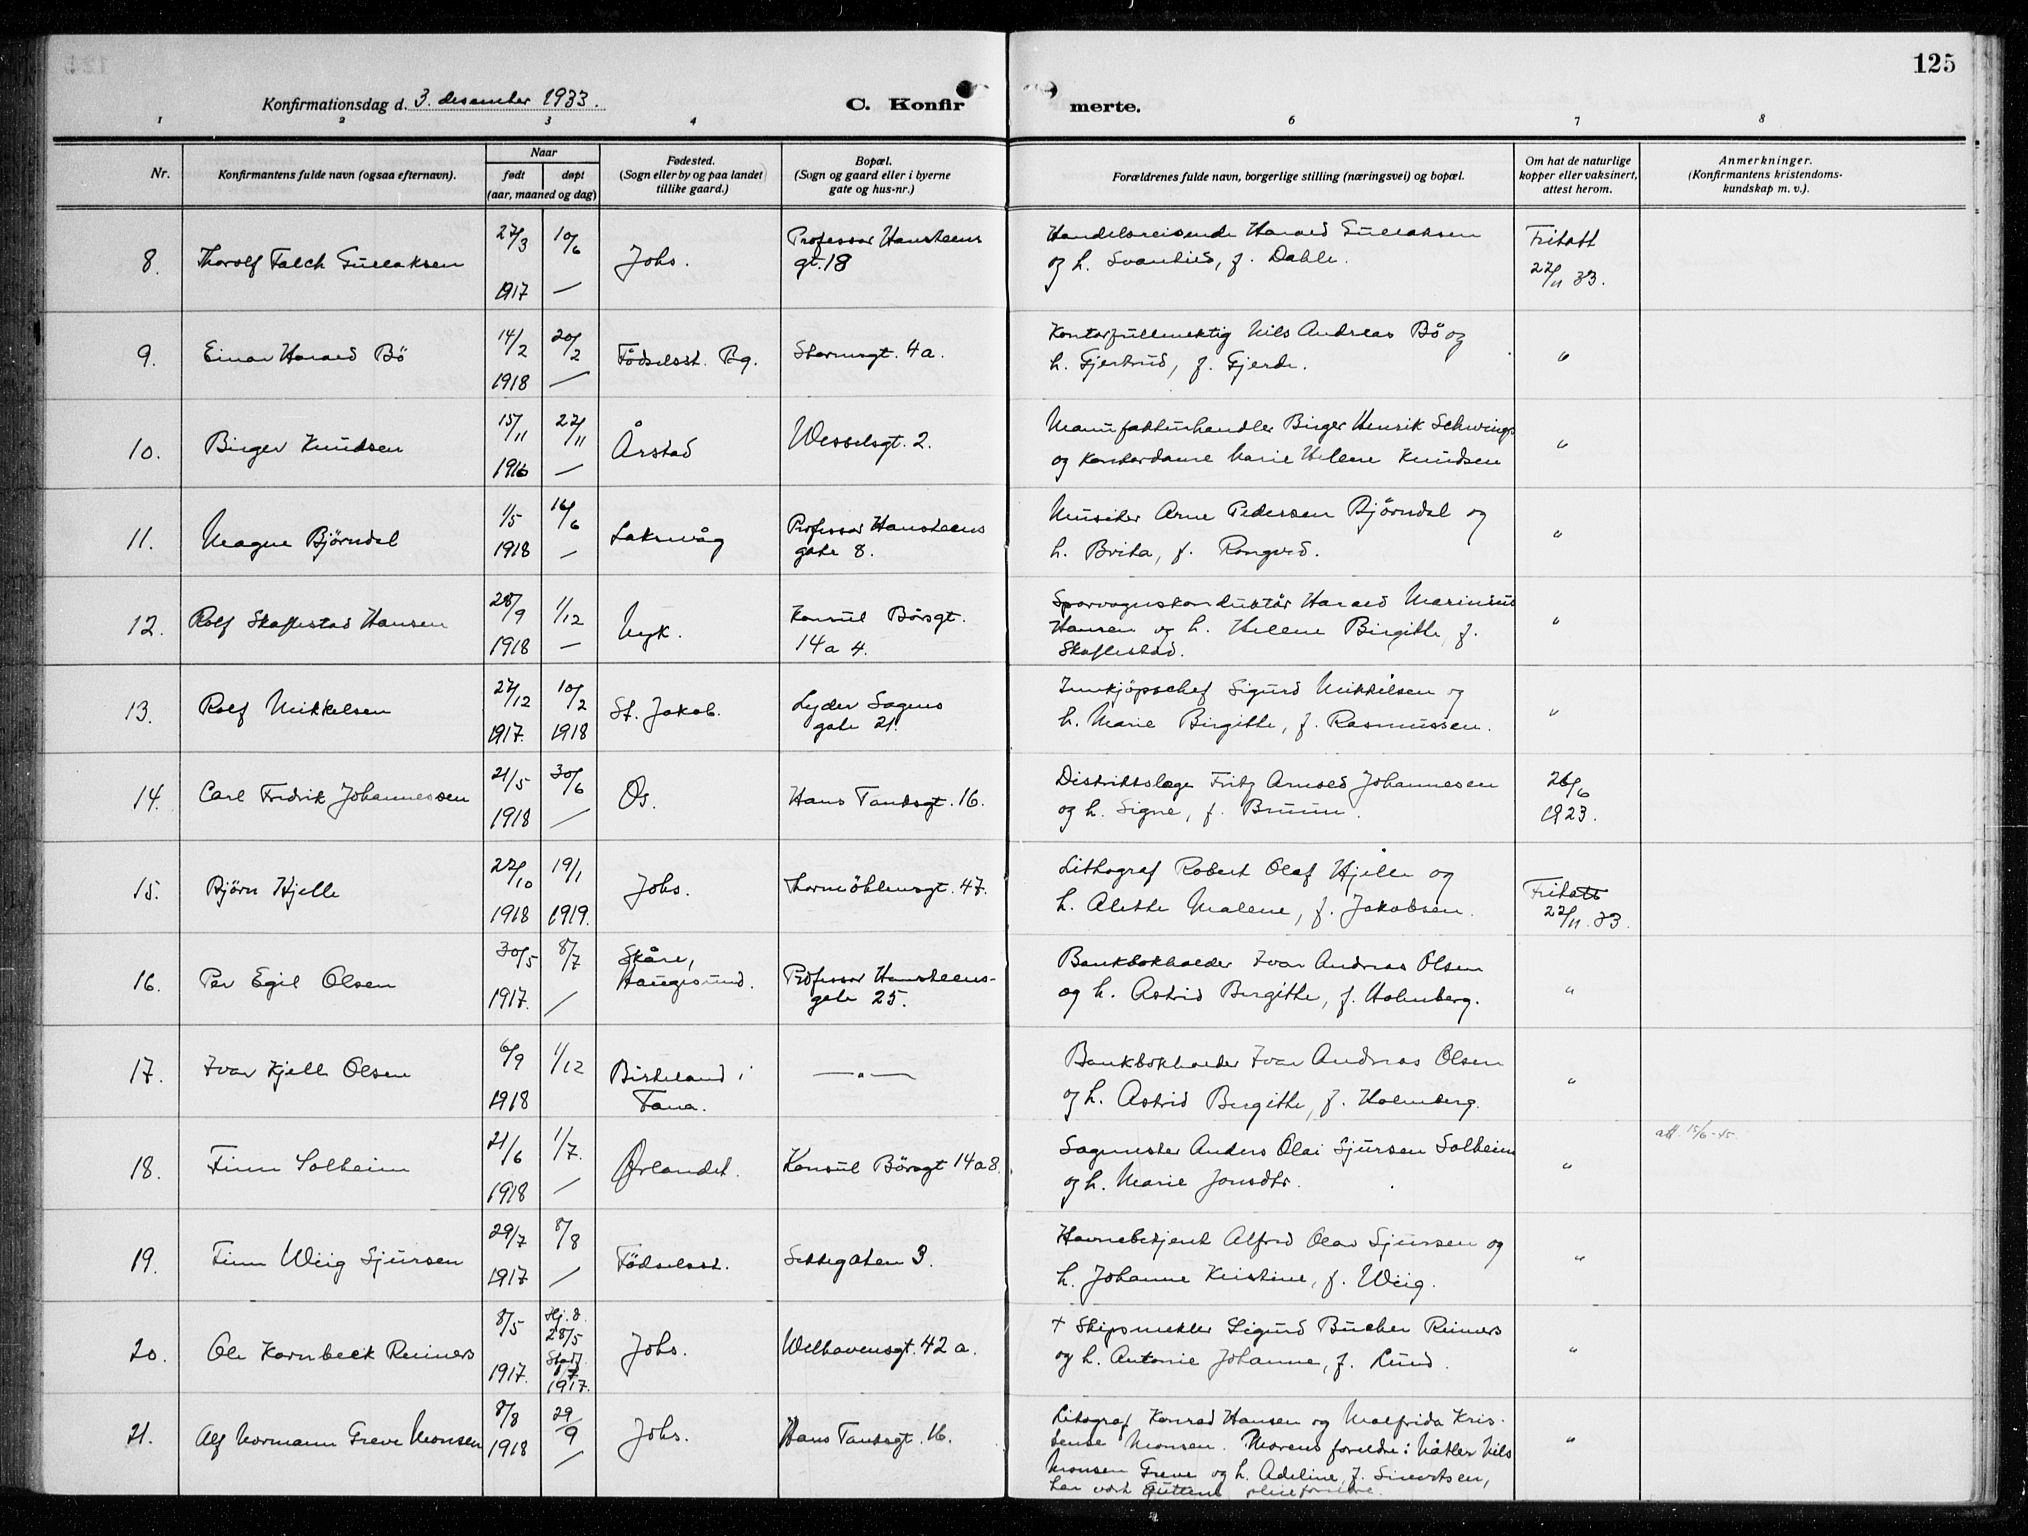 125
Konfirmationsdag d. 3. desember 1933.
C. Konfir
merte.
1 2 3 4 6 7 8
Nr.
Konfirmantens fulde navn (ogsaa efternavn).
Naar
født døpt
(aar, maaned og dag)
Fødested.
(Sogn eller by og paa landet
tillike gaard.)
Bopæl.
(Sogn og gaard eller i byerne
gate og hus-nr.)
Forældrenes fulde navn, borgerlige stilling (næringsvei) og bopæl.
Om hat de naturlige
kopper eller vaksinert,
attest herom.
Anmerkninger.
(Konfirmantens kristendoms-
kundskap m. v.).
8. Thorolf Falch Gullaksen 27/3 1917 10/6 — Johs. Professor Hansteens
gt. 18
Handelsreisende Harald Gullaksen
og h. Svanhild, f. Dahle.
Fritatt
22/11 33.
9. Einar Harald Bö 14/2 1918 20/2 — Födselsst. Bg. Stormsgt. 4a.
Kontorfullmektig Nils Andreas Bö og
h. Gjertrud, f. Gjerde.
"
10. Birger Knudsen 15/11 1916 27/11 — Årstad Wesselsgt. 2.
Manufakturhandler Birger Henrik Schwings
og kontordame Marie Helene Knudsen
"
11. Magne Bjørndal 1/5 1918 16/6 — Laksevåg Professor Hansteens
gate 8.
Musiker Arne Pedersen Bjørndal og
h. Brita, f. Rongved.
"
12. Rolf Skaftestad Hansen 28/9 1918 1/12 — Nyk. Konsul Börsgt.
14a 4.
Sporvognskonduktör Harald Marinius
Hansen og h. Helene Birgitte, f.
Skaftestad.
"
13. Rolf Mikkelsen 27/12 1917. 10/2 1918 St. Jakob. Lyder Sagens
gate 21.
Innkjöpschef Sigurd Mikkelsen og
h. Marie Birgitte, f. Rasmussen.
"
14. Carl Fredrik Johannessen 21/5 1918 30/6 — Os. Hans Tanksgt. 16.
Distriktslæge Fritz Arnold Johannesen
og h. Signe, f. Bruun.
26/6
1923.
15. Bjørn Hjelle 27/10 1918 19/1 1919. Johs. Thormöhlensgt. 47.
Lithograf Robert Olaf Hjelle og
h. Alette Malene, f. Jakobsen.
Fritatt
22/11. 33.
16. Per Egil Olsen 30/5 1917. 8/7 — Skåre,
Haugesund. Professor Hansteens-
gate 25.
Bankbokholder Ivar Andreas Olsen
og h. Astrid Birgitte, f. Holmberg.
"
17. Ivar Kjell Olsen 6/9 1918 1/12 Birkeland i
Fana. —"—
Bankbokholder Ivar Andreas Olsen
og h. Astrid Birgitte, f. Holmberg.
"
18. Finn Solheim 21/6 1918 1/7. — Ørlandet. Konsul Börsgt 14a8.
Sagmester Anders Olai Sjursen Solheim
og h. Marie Jonsdtr.
"
att. 15/6-45.
19. Finn Wiig Sjursen 29/7 1917 8/8 — Födselsst. Settegaten 3.
Havnebetjent Alfred Olav Sjursen og
h. Johanne Kristine, f. Wiig.
"
20. Ole Kornbeck Reimers 8/5 1917. Hj. d.
28/5
Stadf.
1/7
1917. Johs. Welhavensgt. 42a.
+ Skipsmekler Sigurd Bucher Reimers
og h. Antonie Johanne, f. Lund.
"
21. Alf Normann Greve Monsen 8/8 1918 29/9 — Johs. Hans Tanksgt. 16.
Litograf Konrad Hansen og Malfrida Kris-
tense Monsen. Morens foreldre: Nils
Monsen Greve og h. Adeline, f. Sivertsen,
har vært guttens pleieforeldre.
"